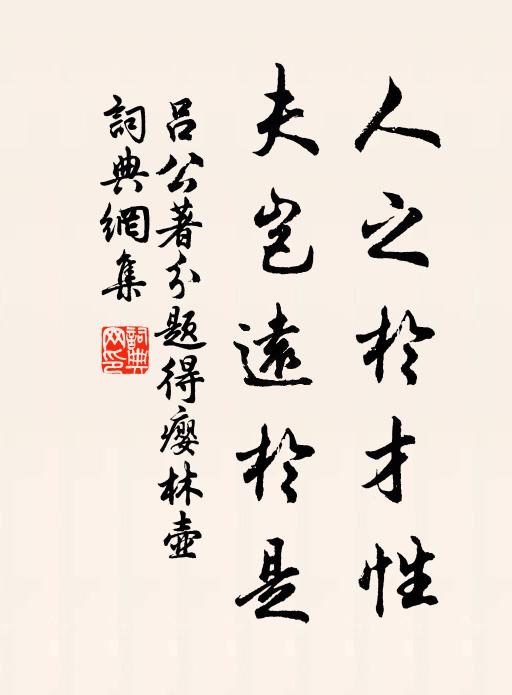 人之於才性
夫岂遠於是
呂公著分题得癭林壺
詞典網集
詞典
网印